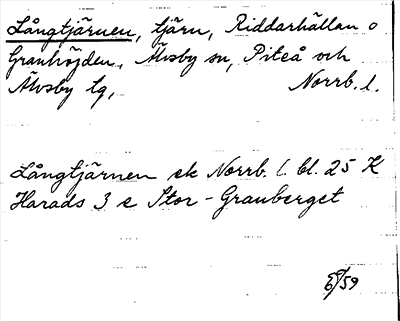 Långtjärnen, tjärn, Riddarhällan o
Granhöjden, Älvsby sn, Piteå och
Älvsby tg, Norrb. l.
Långtjärnen ek Norrb. l. bl. 25 K
Harads 3 e Stor-Granberget
59